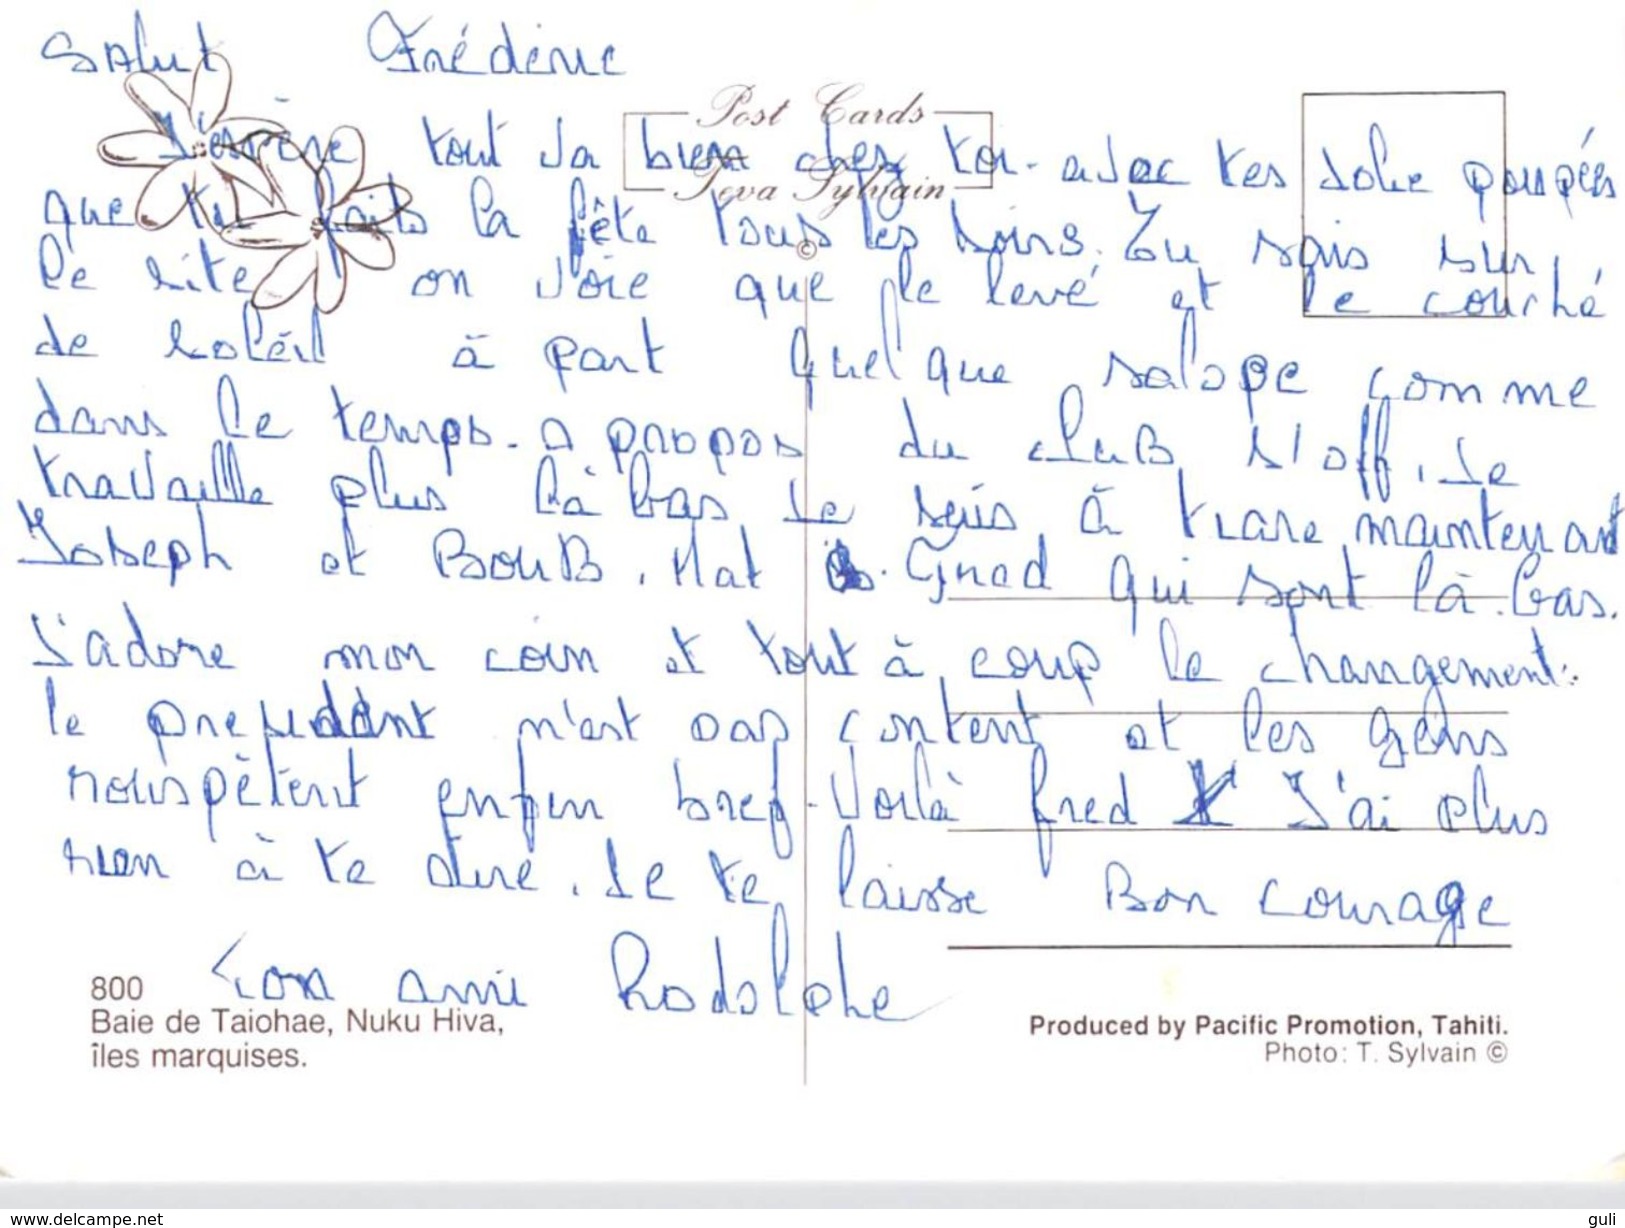 Salut Frédéric
Post Cards
J'espère tout va bien chez toi. avec tes jolie poupées
Teva Sylvain
que tu fais la fête tous les soirs. Tu sais sur
©
le site on voie que le levé et le couché
de soleil à part quelque salope comme
dans le temps. A propos du cluB s'off, Je
travaille plus là bas Je suis à maintenant
Joseph et BouB, Mat Gred qui sont là.bas.
J'adore mon coin et tout à coup le changement.
le n'est pas content et les gens
nous pètent enfin bref. Voilà fred J'ai plus
rien à te dire. Je te laisse Bon courage
ton ami Rodolphe
800
Baie de Taiohae, Nuku Hiva,
îles marquises.
Produced by Pacific Promotion, Tahiti.
Photo: T. Sylvain ©
www.delcampe.net
guli